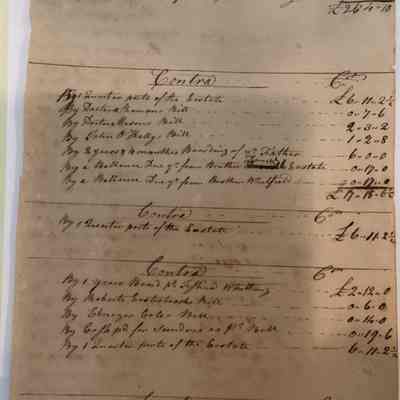 £26-4-10
Contra Cr
By 1 Quarter parts of the Eastate £6-11-2½
By Doctor Bill 0-7-6
By Doctor Masons Bill 2-8-2
By Colin O Kellys Bill 1-2-8
By 2 years & monunthes Boarding of yr Father 6-0-0
By a Ballance Due yr from Brother Eastate 0-17-0
By a Ballance Due yr from Brother Whitfield 0-17-0
£17-18-6½
Contra Cr
By 1 Quarter parts of the Eastate £6-11-2½
Contra Cr
By 1 years Board £2-12-0
By Roberts Bill 0-6-0
By Ebenezer Coles Bill 0-14-0
By Cash pd for Sundres as pr Bill 0-19-6
By 1 Quarter parts of the Eastate 6-11-2½